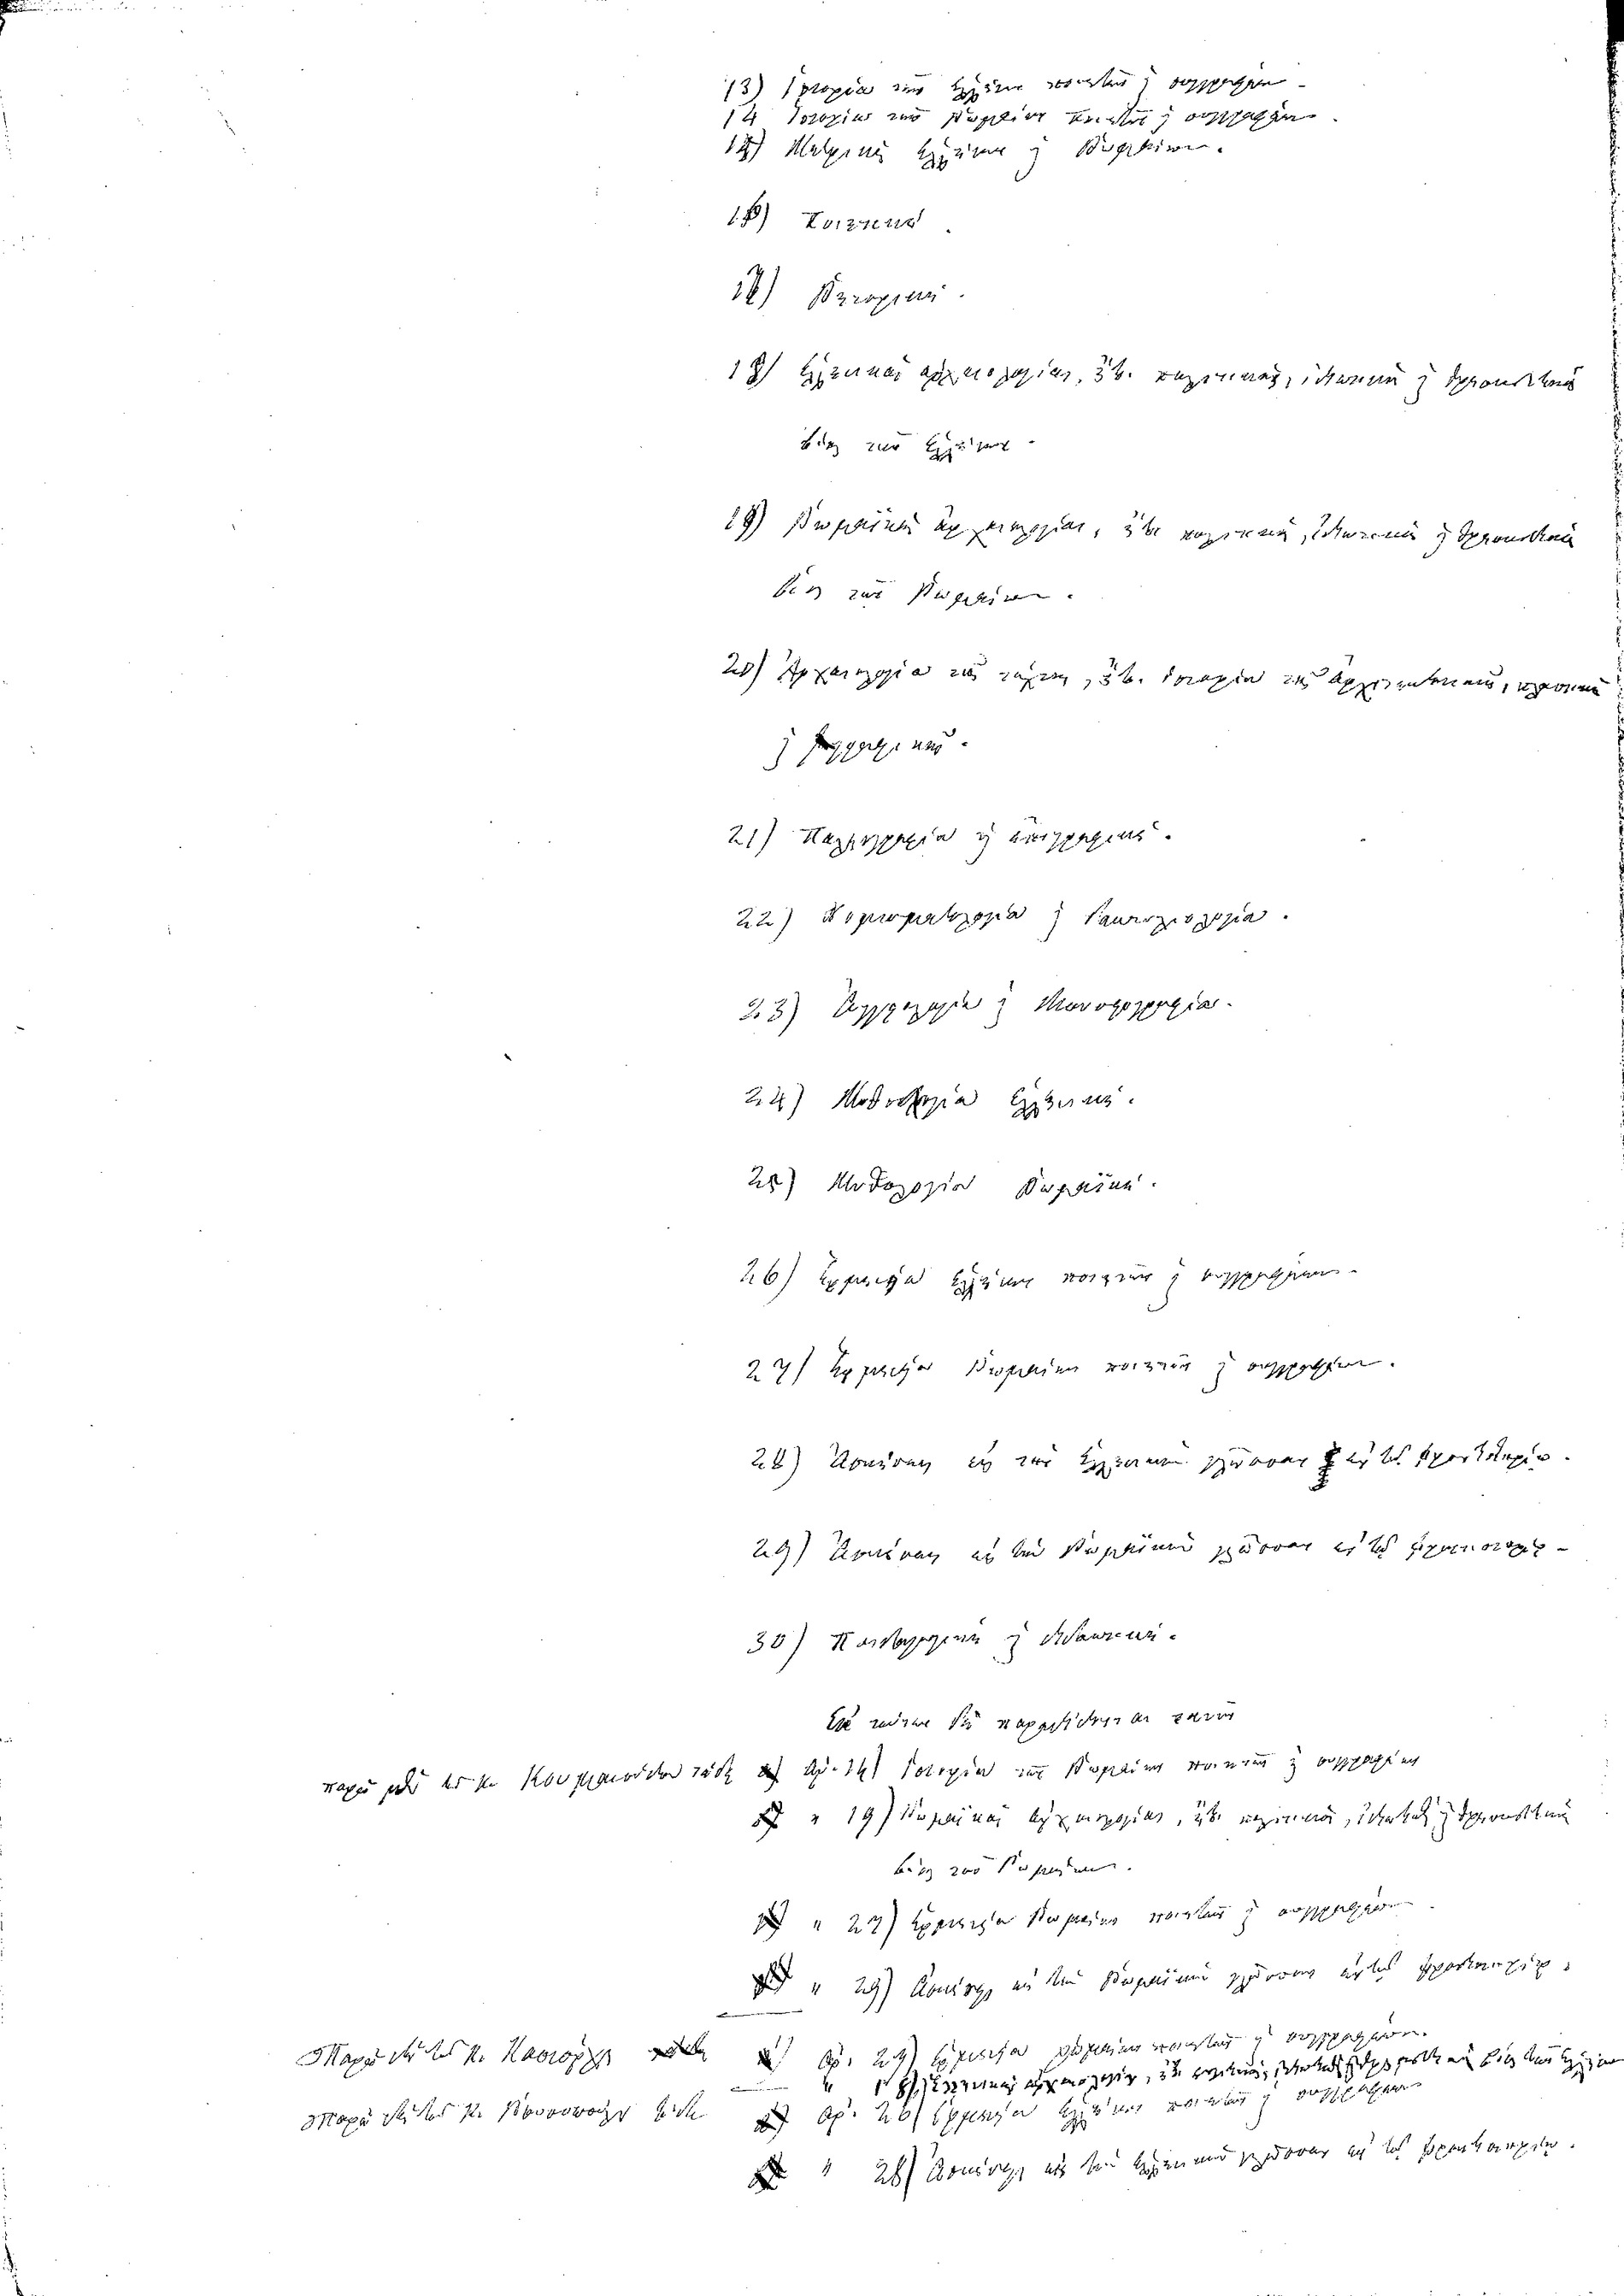 13) Ἱστορία τῶν Ἑλλήνων ποιητῶν καὶ συγγραφέων.
14 Ἱστορία τῶν Ῥωμαίων ποιητῶν καὶ συγγραφέων.
15) Μετρικὴ Ἑλλήνων καὶ Ῥωμαίων.
16) Ποιητική
17) Ῥητορική.
18) Ἑλληνικαὶ ἀρχαιολογίαι, πολιτικοῦ, ἰδιωτικοῦ καὶ θρησκευτικοῦ
βίου τῶν Ἑλλήνων.
19) Ῥωμαϊκαὶ ἀρχαιολογίαι, πολιτικοῦ, ἰδιωτικοῦ καὶ θρησκευτικοῦ
βίου τῶν Ῥωμαίων.
20) Ἀρχαιολογία τῆς τέχνης, ἱστορία τῆς ἀρχιτεκτονικῆς, πλαστικῆς
καὶ ζωγραφικῆς.
21) Παλαιογραφία καὶ ἐπιγραφική.
22) Νομισματολογία καὶ
23)
24) Μυθολογία Ἑλληνική.
25) Μυθολογία Ῥωμαϊκή.
26) Ἑρμηνεία Ἑλλήνων ποιητῶν καὶ συγγραφέων.
27) Ἑρμηνεία Ῥωμαίων ποιητῶν καὶ συγγραφέων.
28) Ἀσκήσεις εἰς τὴν Ἑλληνικὴν γλῶσσαν εἰς τὸ φροντιστήριον.
29) Ἀσκήσεις εἰς τὴν Ῥωμαϊκὴν γλῶσσαν εἰς τὸ φροντιστήριον.
30) Παιδαγωγικὴ καὶ διδακτική.
Ἐκ τούτων δὲ
παρὰ μὲν τοῦ κ. Κουμανούδου ἀρ. 14) Ἱστορία τῶν Ῥωμαίων ποιητῶν καὶ συγγραφέων
" 19) Ῥωμαϊκαὶ ἀρχαιολογίαι, πολιτικοῦ, ἰδιωτικοῦ καὶ θρησκευτικοῦ
βίου τῶν Ῥωμαίων.
" 27) Ἑρμηνεία Ῥωμαίων ποιητῶν καὶ συγγραφέων.
" 29) Ἀσκήσεις εἰς τὴν Ῥωμαϊκὴν γλῶσσαν εἰς τὸ φροντιστήριον.
Παρὰ δὲ τοῦ κ. Καστόρχη ἀρ. 27) Ἑρμηνεία Ῥωμαίων ποιητῶν καὶ συγγραφέων.
" 18) Ἑλληνικαὶ ἀρχαιολογίαι, βίου τῶν Ἑλλήνων
Παρὰ δὲ τοῦ κ. ἀρ. 26) Ἑρμηνεία Ἑλλήνων ποιητῶν καὶ συγγραφέων
" 28) Ἀσκήσεις εἰς τὴν Ἑλληνικὴν γλῶσσαν εἰς τὸ φροντιστήριον.